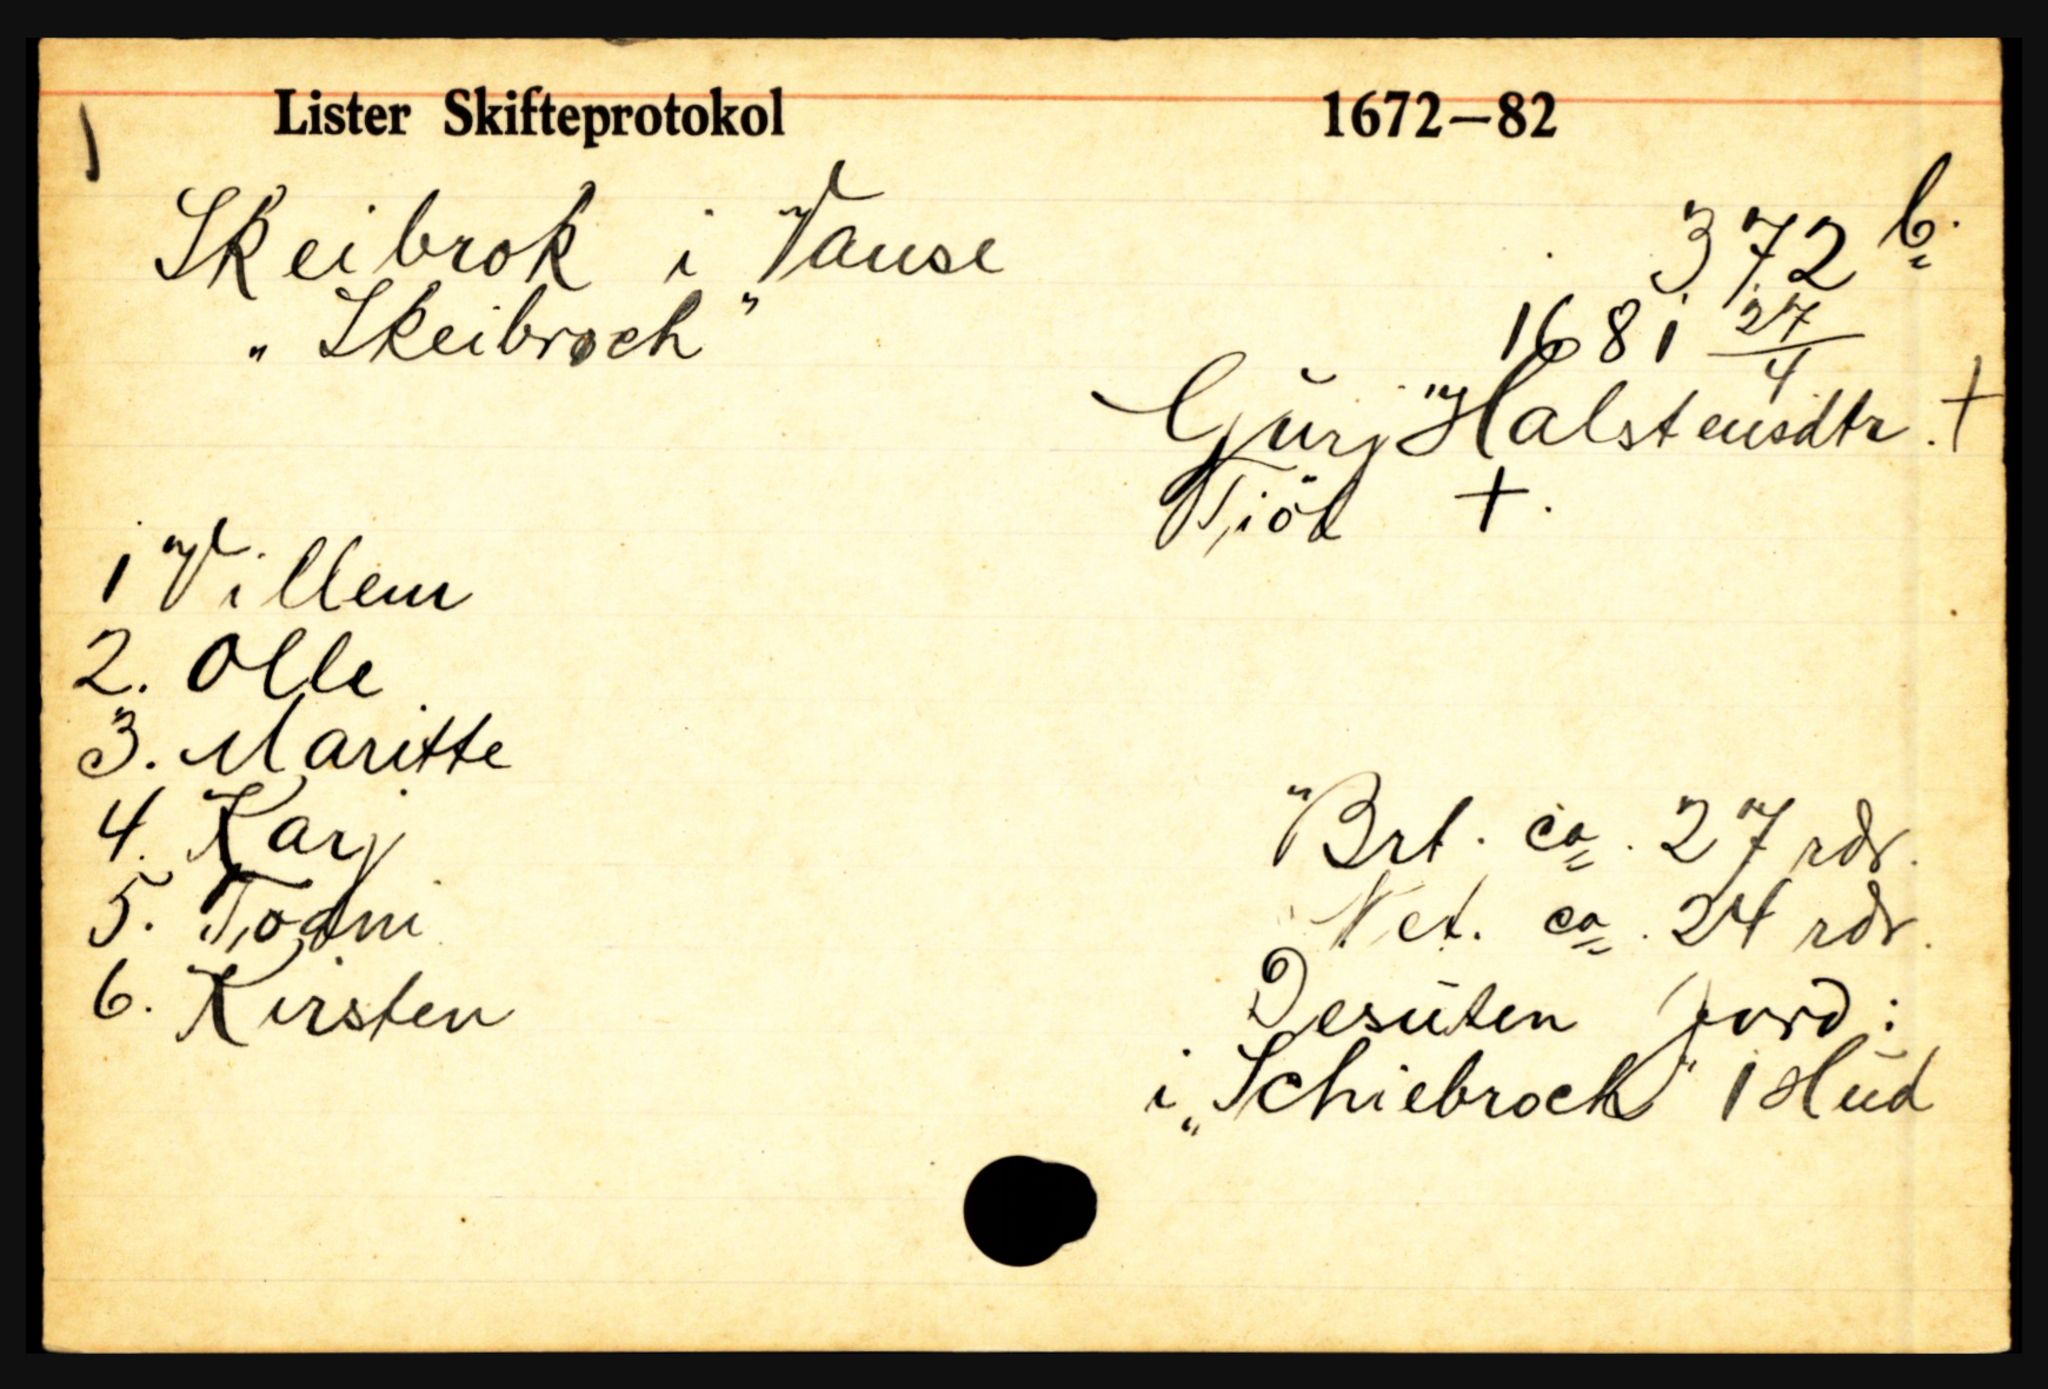 Lister Skifteprotokol 1672—82
Skeibrok i Vanse 372 b.
"Skeibroch"
1681 27/4
Gurj Halstensdtr. +
Tiöl +.
1 Villem
2. Olle
3. Maritte
4. Karj
5. Todni
6. Kirsten
Brt. ca. 27 rdr.
Net. ca. 24 rdr.
Desuten jord:
i "Schiebrock" 1 Hud